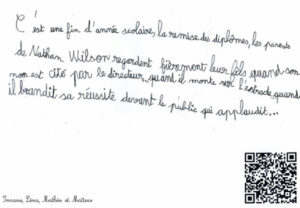 C'est une fin d'année scolaire, la remise des diplômes, les parents
de Nathan Wilson regardent fièrement leur fils quand son
nom est cité par le directeur, quand il monte sur l'estrade, quand
il brandit sa réussite devant le public qui applaudit...
Léna, Mathis et Mattéo